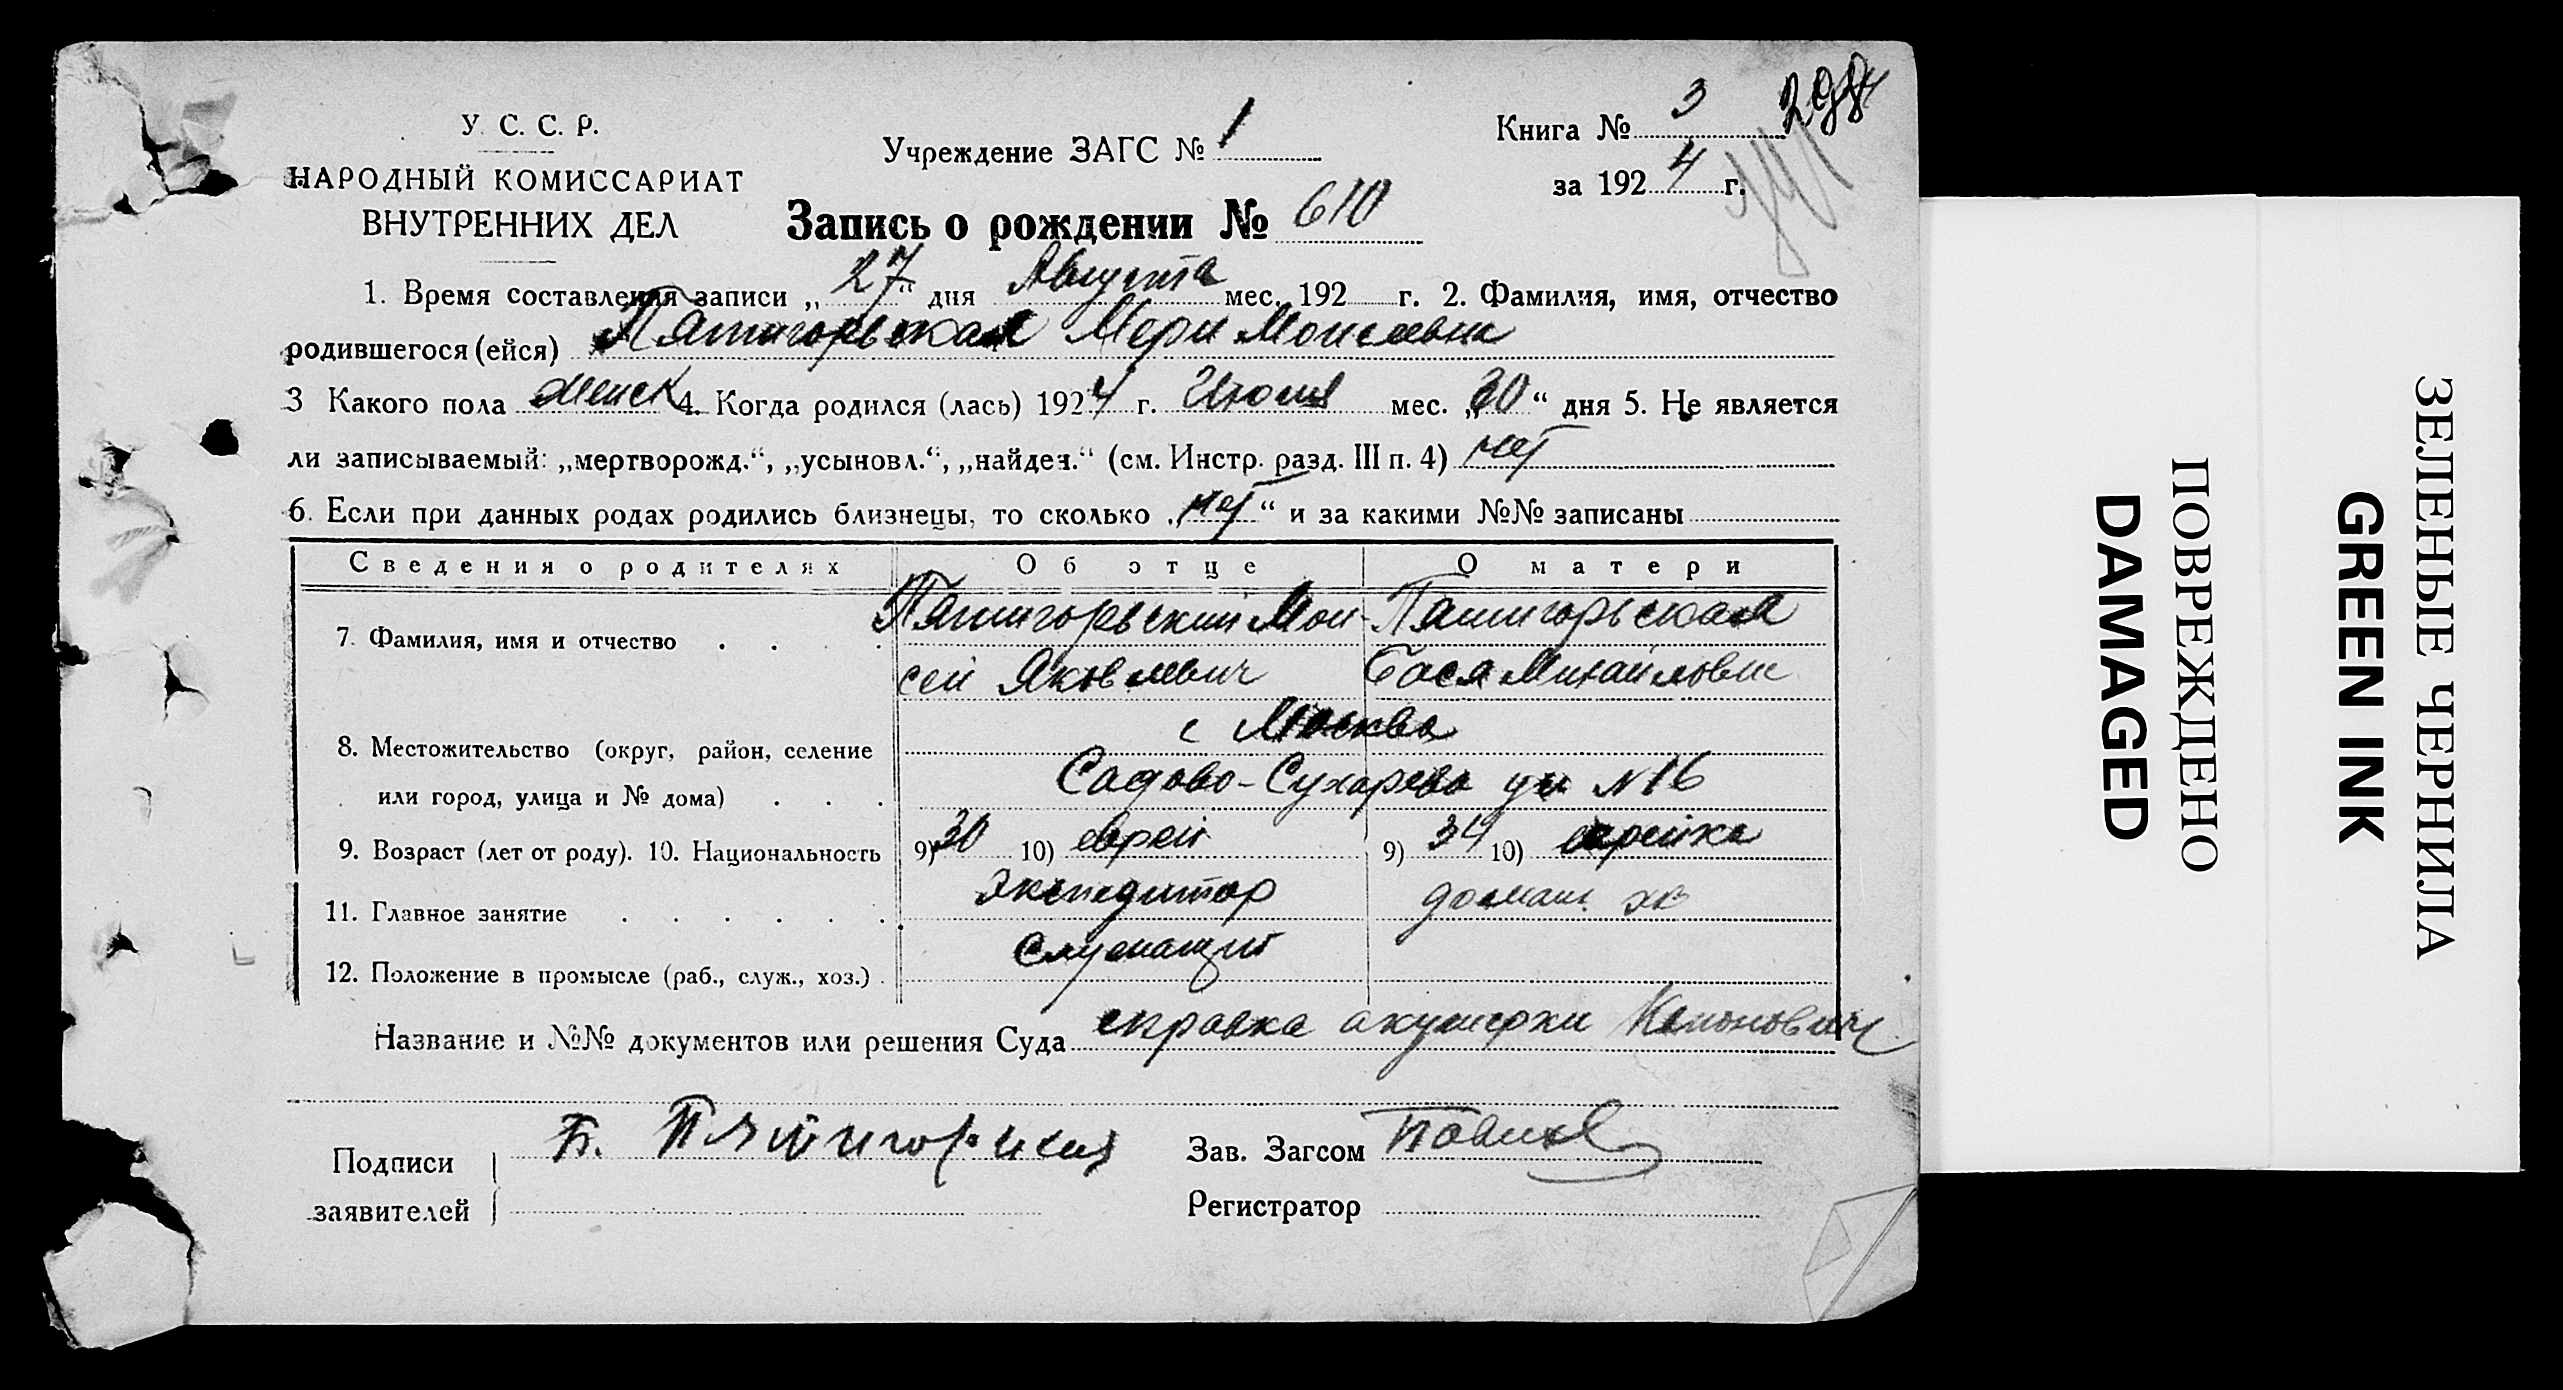 У. С. С. Р.
НАРОДНЫЙ КОМИССАРИАТ
ВНУТРЕННИХ ДЕЛ
Учреждение ЗАГС № 1
Книга № 3
за 1924 г.
Запись о рождении № 610
1. Время составления записи „27“ дня Августа мес. 192 г. 2. Фамилия, имя, отчество
родившегося (ейся) Пятигорьская Мери Моисеевна
3 Какого пола женск 4. Когда родился (лась) 1924 г. Июля мес. „30“ дня 5. Не является
ли записываемый: „мертворожд.“, „усыновл.“, „найден.“ (см. Инстр. разд. III п. 4) нет
6. Если при данных родах родились близнецы, то сколько „нет“ и за какими №№ записаны
Сведения о родителях Об отце О матери
7. Фамилия, имя и отчество Пятигорьский Мои- Пятигорьская
сей Яковлевич Бася Михайловн
г Москва
8. Местожительство (округ, район, селение
или город, улица и № дома) Садово-Сухарева ул N 16
9. Возраст (лет от роду). 10. Национальность 9) 30 10) еврей 9) 10) еврейка
11. Главное занятие Экспедитор домаш. хоз
12. Положение в промысле (раб., служ., хоз.) Служащий
Название и №№ документов или решения Суда справка акушерки
Подписи Б. Пятигорская Зав. Загсом
заявителей Регистратор
DAMAGED
ПОВРЕЖДЕНО
GREEN INK
ЗЕЛЕНЫЕ ЧЕРНИЛА